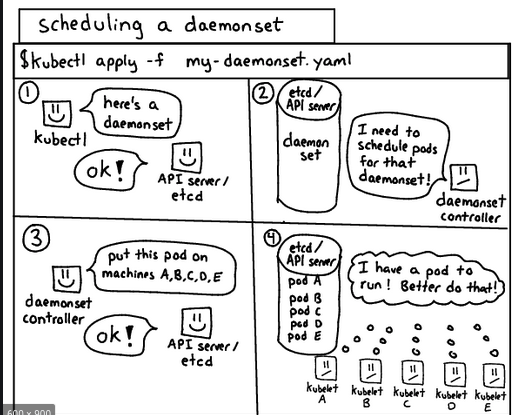 scheduling a daemonset
$kubectl apply -f my-daemonset.yaml
1
here's a
daemonset
kubectl
ok!
API server/
etcd
2
etcd/
API server
daemon
set
I need to
schedule pods
for that
daemonset!
daemonset
controller
3
put this pod on
machines A,B,C,D,E
daemonset
controller
ok!
API server/
etcd
4
etcd/
API server
pod A
pod B
pod C
pod D
pod E
I have a pod to
run! Better do that!
kubelet
A
kubelet
B
kubelet
C
kubelet
D
kubelet
E
600 x 900